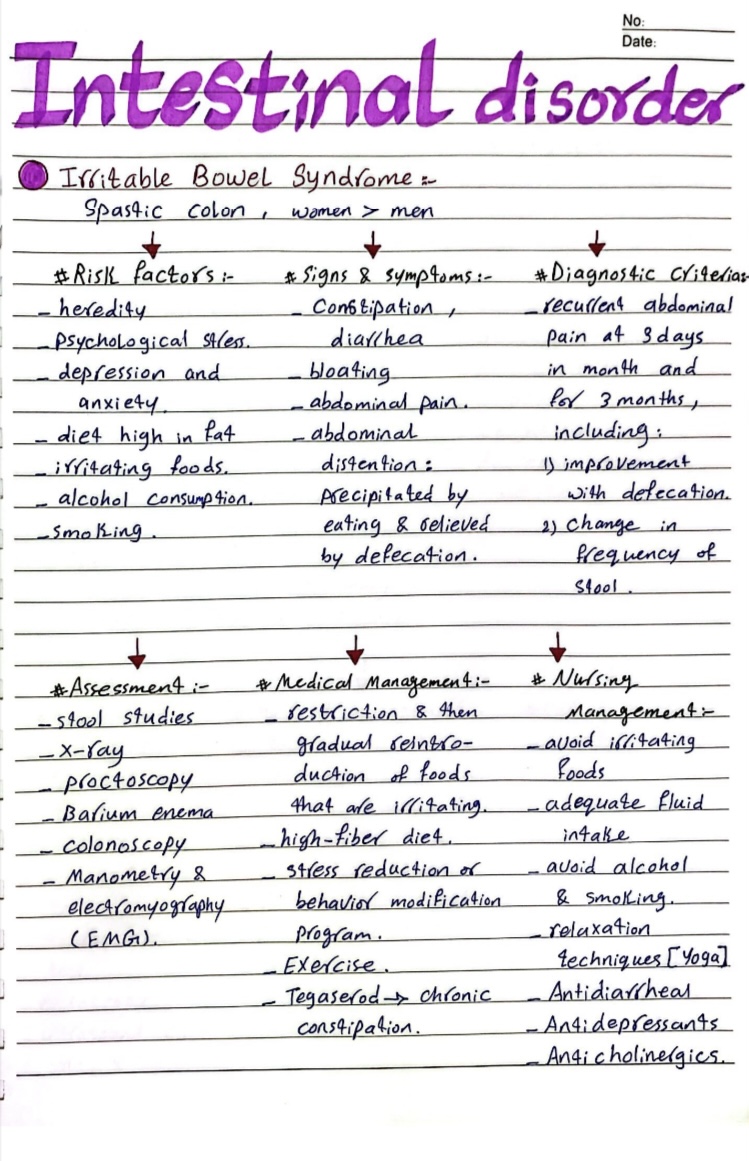 No:
Date:
Intestinal disorder
Irritable Bowel Syndrome :-
Spastic colon , women > men
# Risk factors :-
- heredity
- psychological stress.
- depression and
anxiety.
- diet high in fat
- irritating foods.
- alcohol consumption.
- smoking .
# Signs & symptoms :-
- Constipation ,
diarrhea
- bloating
- abdominal pain .
- abdominal
distention :
precipitated by
eating & relieved
by defecation .
# Diagnostic Criteria:-
- recurrent abdominal
pain at 3 days
in month and
for 3 months ,
including :
1) improvement
with defecation.
2) Change in
frequency of
stool .
# Assessment :-
- stool studies
- X-ray
- proctoscopy
- Barium enema
- colonoscopy
- Manometry &
electromyography
(EMG).
# Medical Management :-
- restriction & then
gradual reintro-
duction of foods
that are irritating.
- high-fiber diet .
- stress reduction or
behavior modification
program .
- Exercise .
- Tegaserod → chronic
constipation .
# Nursing
Management :-
- avoid irritating
foods
- adequate fluid
intake
- avoid alcohol
& smoking.
- relaxation
techniques [Yoga]
- Antidiarrheal
- Antidepressants
- Anticholinergics.